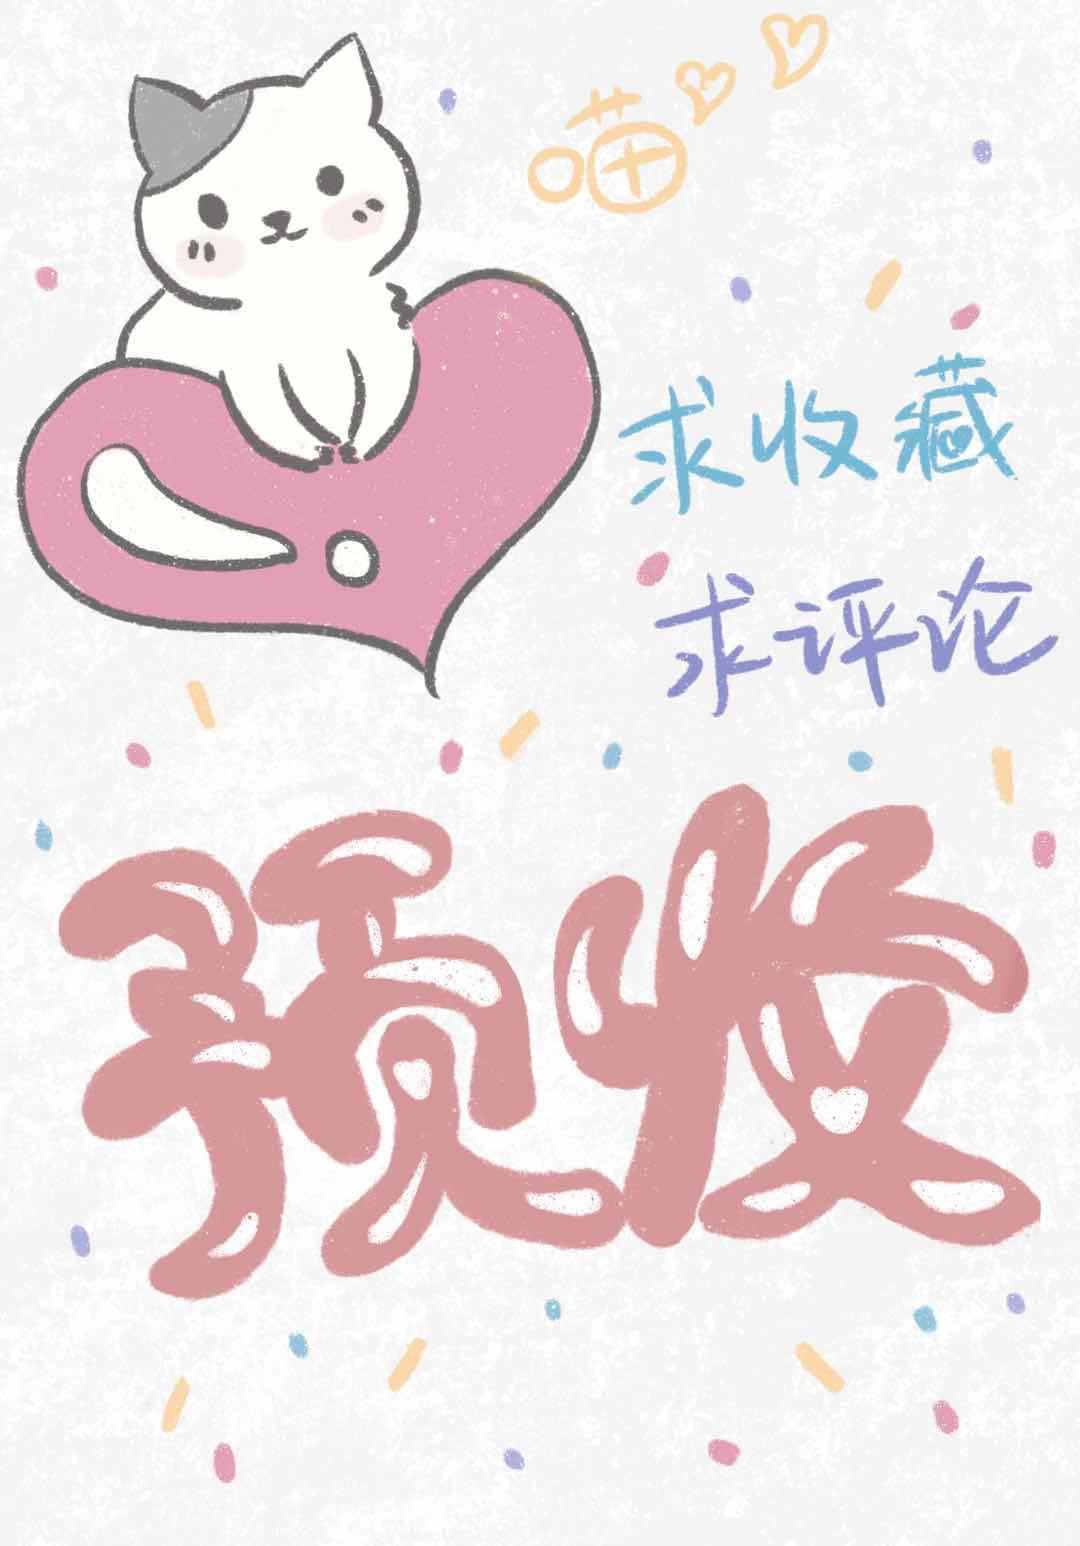 喵
求收藏
求评论
预收